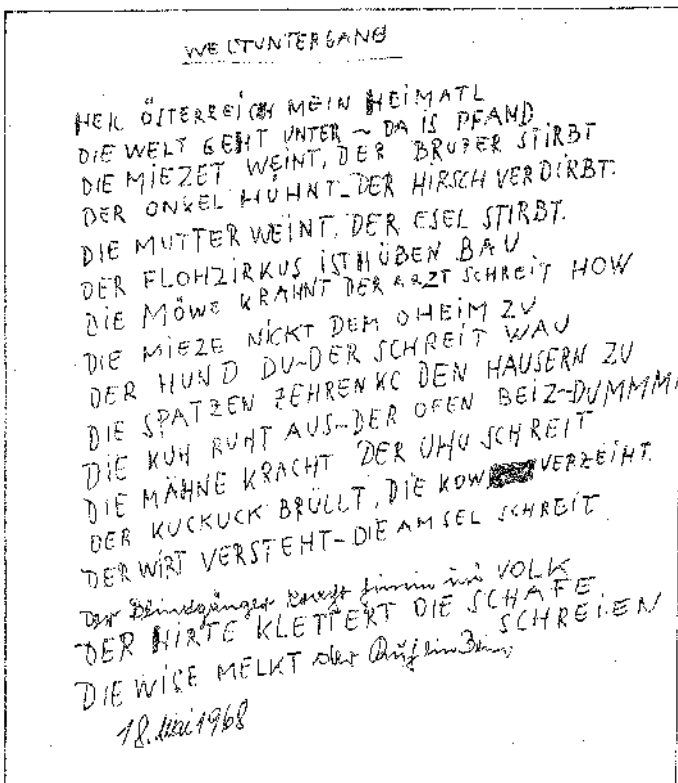 WELTUNTERGANG
HEIL ÖSTERREICH MEIN HEIMATL
DIE WELT GEHT UNTER ~ DA IS PFAND
DIE MIEZET WEINT, DER BRUDER STIRBT
DER ONKEL HÜHNT-DER HIRSCH VERDIRBT.
DIE MUTTER WEINT, DER ESEL STIRBT.
DER FLOHZIRKUS IST HÜBEN BAU
DIE MÖWE KRAHNT DER ARZT SCHREIT HOW
DIE MIEZE NICKT DEM OHEIM ZU
DER HUND DU-DER SCHREIT WAU
DIE SPATZEN ZEHREN DEN HAUSERN ZU
DIE KUH RUHT AUS-DER OFEN BEIZ-DUMMM
DIE MÄHNE KRACHT DER UHU SCHREIT
DER KUCKUCK BRÜLLT, DIE VERZEIHT.
DER WIRT VERSTEHT-DIE AMSEL SCHREIT
Der Blindgänger VOLK
DER HIRTE KLETTERT DIE SCHAFE
SCHREIEN
DIE WISE MELKT der
18. Mai 1968